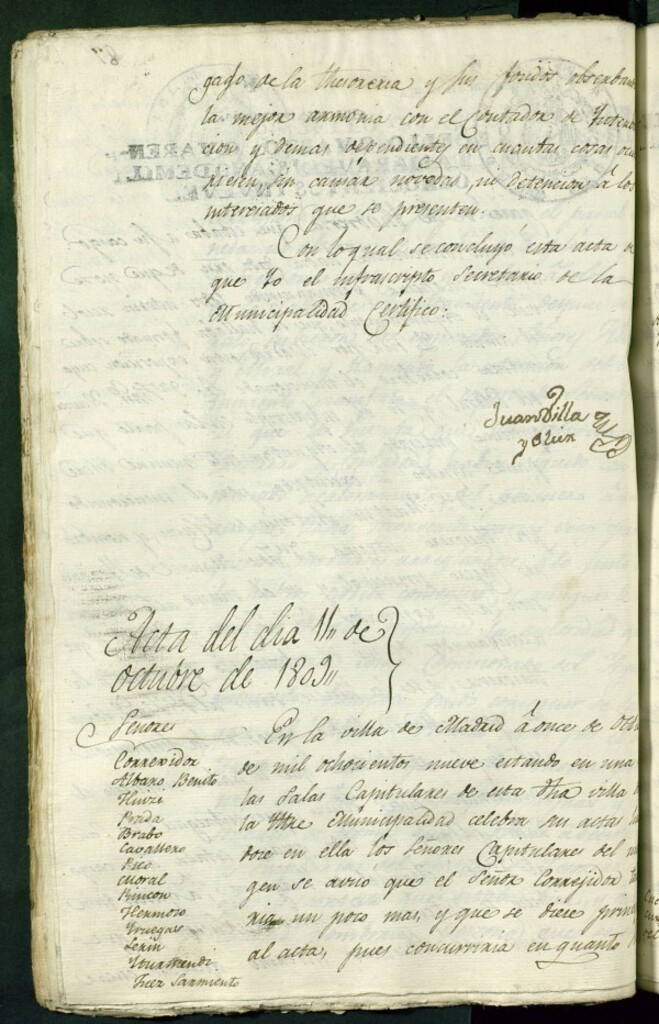 gado de la thesoreria y sus fondos obserban
la mejor armonia con el Contador de Inten
cion y demas dependientes en cuantas cosas ocu
rriesen, sin causar novedad, ni detencion á los
interesados que se presenten.
Con lo qual se concluyó esta acta de
que Yo el infrascripto Secretario de la
Municipalidad Certifico:
Juan Villa
y Olier
Acta del dia 11,, de
octubre de 1809,,
Señores
Correxidor
Albaro Benito
Prada
Brabo
Cavallero
Pico
Moral
Rincon
Hermoso
Yruegas
Iturmendi
Fser Sarmiento
En la villa de Madrid á once de Octu
de mil ochocientos nueve estando en una
las Salas Capitulares de esta dha villa
la Ytre Municipalidad celebra sus actas
dose en ella los señores Capitulares del m
gen se aviso que el Señor Correjidor ta
ria un poco mas, y que se diese princi
al acta, pues concurriria en quanto